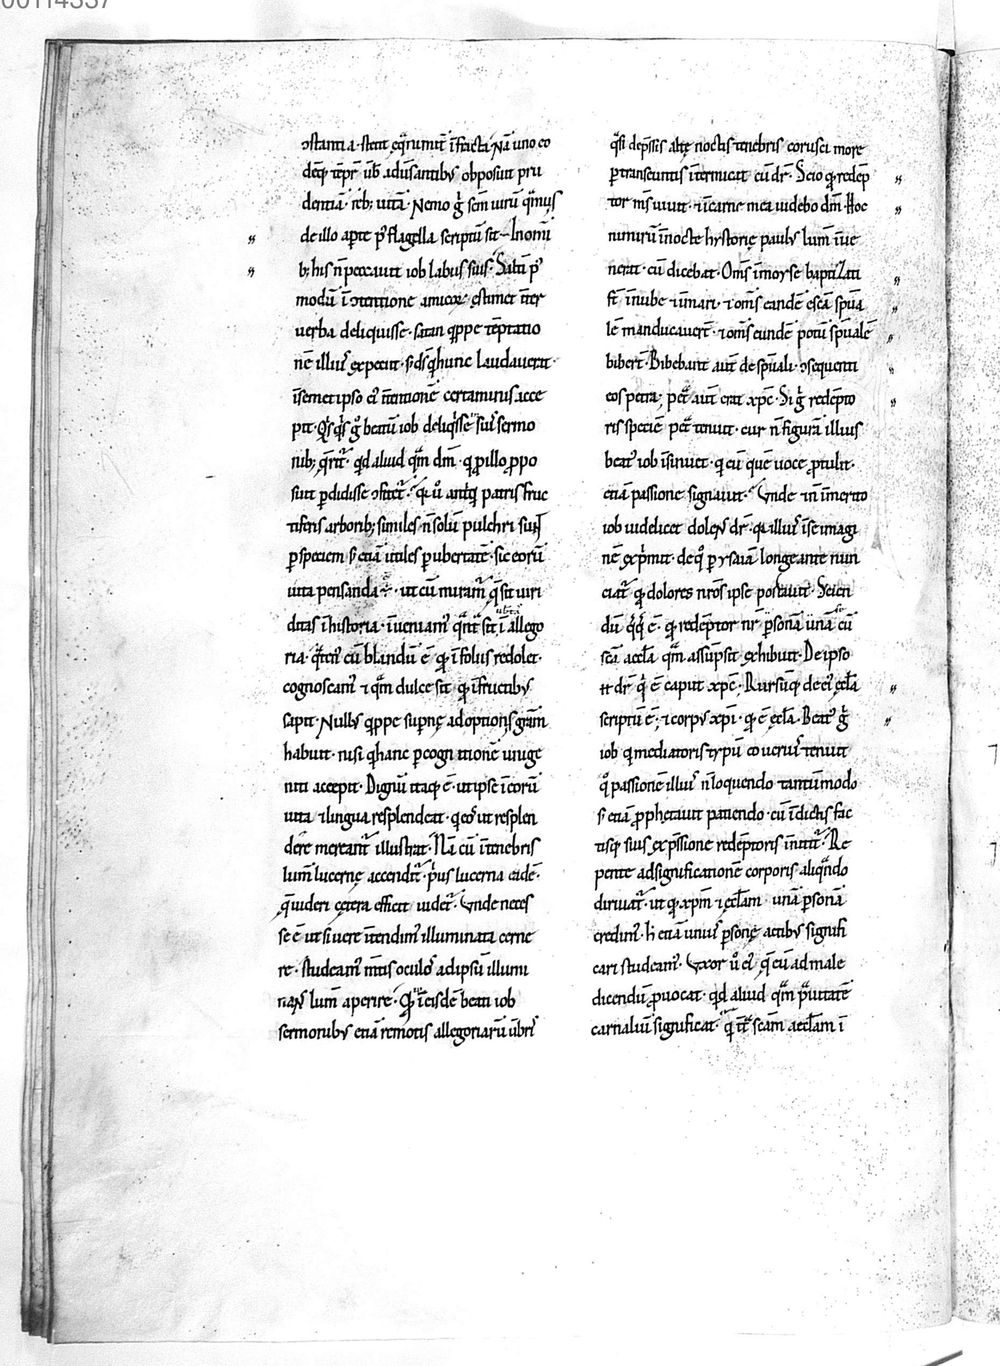 00114337
ↄstantia. stetit eq̄nimit̄ īfracta. Nā uno eo
dēq; tēpr̄ ūb̄ aduīsantibꝰ obposuit pru
dentiā. reb; uitā. Nemo ḡ sc̄m uirū q̄muis
de illo apte p̄ flagella scriptū sit. In om̄i
b; his n̄ peccauit iob labiis suis. Saltī p̄
modū ī ↄtentione amicoꝝ ęstimet īter
uerba deliquisse. Satan q̄ppe tēptatio
nē illiuꝰ expetiit. s; d̄s q̇ hunc laudauerat.
īsemetipso eiꝰ ītentionē certaminis acce
pit. Q̇sq̇s ḡ beatū iob deliq̇sse ī suis sermo
nib; q̄rit. qd aliud q̄m dm̄. q̇ p illo ppo
suit pdidisse ↄfitet̄. Qa ū antiq̇ patres fruc
tiferis arborib; similes n̄ solū pulchri sunt
p speciem s; etiā utiles p ubertatē. sic eorū
uita pensanda ē. ut cū miram̄ q̄ sit uiri
ditas ī historia. īueniamꝰ q̄nta sit ubertas ī allego
ria. q̄tenꝰ cū blandū ē qd ī foliis redolet.
cognoscamꝰ ⁊ q̄m dulce sit qd ī fructibꝰ
sapit. Nullꝰ q̄ppe supnę adoptionis grām
habuit. nisi q̇ hanc p cognitionē unige
niti accepit. Dignū itaq; ē. ut ipse ī eorū
uita ⁊ lingua resplendeat. q̇ eos ut resplen
dere mereant̄ illustrat. Nā cū ī tenebris
lum̄ lucernę accendit̄. p̄us lucerna eadē.
q̄ uideri cętera efficit uidet̄. Unde neces
se ē ut si uere ītendimꝰ illuminata cerne
re. studeamꝰ mītis oculos ad ipsū illumi
nans lum̄ aperire. Qd ī eisdē beati iob
sermonibꝰ etiā remotis allegoriarū ūbris
q̄si dep̄ssis altę noctis tenebris corusci more
ptranseuntis ītermicat cū dr̄. Scio qd redēp
tor mŝ uiuit. ⁊ ī carne mea uidebo dm̄. Hoc
nimirū ī nocte hystorię paulꝰ lum̄ īue
nerat. cū dicebat. Om̄s ī moyse baptizati
st̄ ī nube ⁊ ī mari. ⁊ om̄s eandē escā sp̄ua
lē manducauer̄. ⁊ om̄s eundē potū sp̄ualē
biber̄. Bibebant aut̄ de sp̄uali. ↄsequenti
eos petra; pet̄ aut̄ erat xp̄c. Si ḡ redēpto
ris speciē pet̄ tenuit. cur n̄ figurā illius
beatꝰ iob īsinuet. q̇ eū quē uoce ptulit.
etiā passione signauit. Unde ⁊ n̄ īmerito
iob uidelicet dolens dr̄. q̇a illiuꝰ ī se imagi
nē exp̄mit. de q̇ p ysaiā longe ante nun
ciat̄. qd dolores nrōs ipse portauit. Scien
dū q̇q̇ ē. qd redēptor nr̄ psonā unā cū
scā aeccl̄a q̄m assūpsit exhibuit. De ipso
.n. dr̄. q̇ ē caput xp̄c. Rursūq; de ei ęccl̄a
scriptū ē. ⁊ corpꝰ xp̄i. qd ē ęccl̄a. Beatꝰ ḡ
iob q̇ mediatoris typū eo ueriuꝰ tenuit
q̇ passionē illiuꝰ n̄ loquendo tantūmodo
s; etiā pphetauit patiendo. cū ī dictis fac
tisq; suis exp̄ssione redēptoris īnitit̄. Re
pente ad significationē corporis aliq̄ndo
diriuat̄. ut qd xp̄m ⁊ ęccl̄am unā psonā
credimꝰ. h̄ etiā uniuꝰ psonę actibꝰ signifi
cari studeamꝰ. Uxor ū eiꝰ q̄ eū ad male
dicendū puocat. qd aliud q̄m p̄uitatē
carnaliū significat. q̄ īt̄ scam aeccl̄am ī